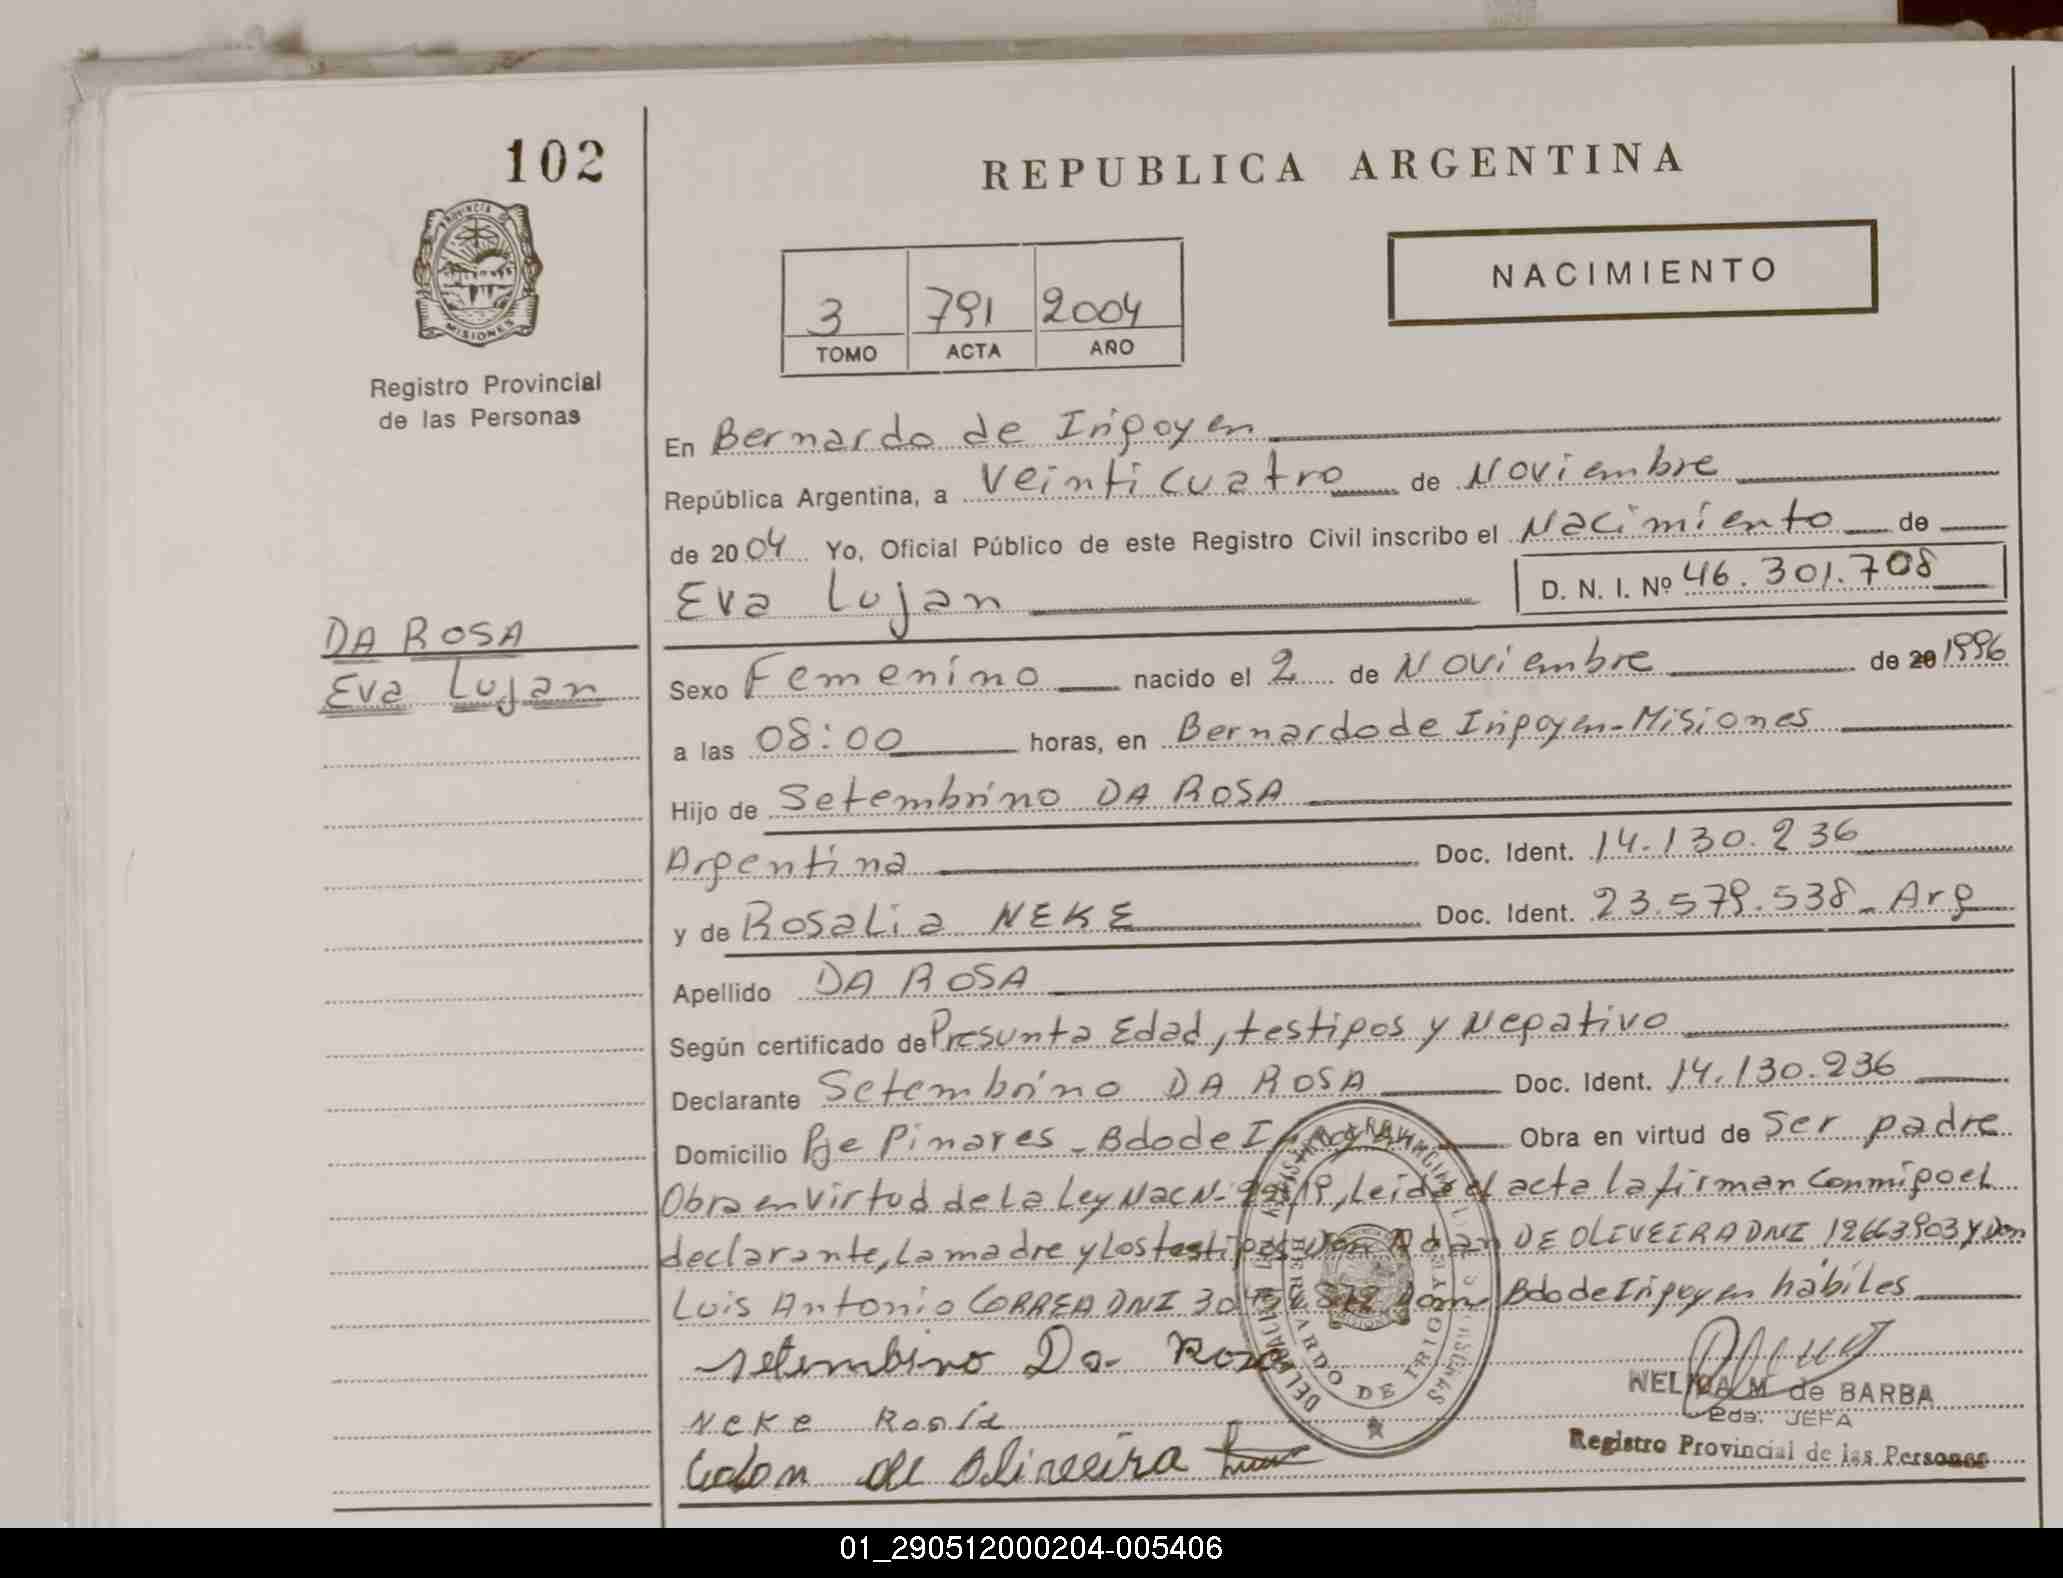 102
REPUBLICA ARGENTINA
PROVINCIA DE
MISIONES
Registro Provincial
de las Personas
NACIMIENTO
3 791 2004
TOMO ACTA AÑO
En Bernardo de Irigoyen
República Argentina, a Veinticuatro de Noviembre
de 2004 Yo, Oficial Público de este Registro Civil inscribo el Nacimiento de
Eva Lujan D. N. I. Nº 46.301.708
DA ROSA
Eva Lujan
Sexo Femenino nacido el 2 de Noviembre de 20 1996
a las 08:00 horas, en Bernardo de Irigoyen-Misiones
Hijo de Setembrino DA ROSA
Argentina Doc. Ident. 14.130.236
y de Rosalia NEKE Doc. Ident. 23.579.538-Arg
Apellido DA ROSA
Según certificado de Presunta Edad, testigos y Negativo
Declarante Setembrino DA ROSA Doc. Ident. 14.130.236
Domicilio Pje Pinares - Bdo de Obra en virtud de Ser padre
Obra en virtud de La Ley Nac N- Leida el acta la firman conmigo el
declarante, La madre y Los testigos Don DE OLIVEIRA DNI 12663903 y Don
Luis Antonio CORREA DNI Dom. Bdo de Irigoyen hábiles
Setembrino Da Rosa
Neke
de Oliveeira
BERNARDO DE IRIGOYEN
MISIONES
NELIDA M. de BARBA
JEFA
Registro Provincial de las Personas
01_290512000204-005406